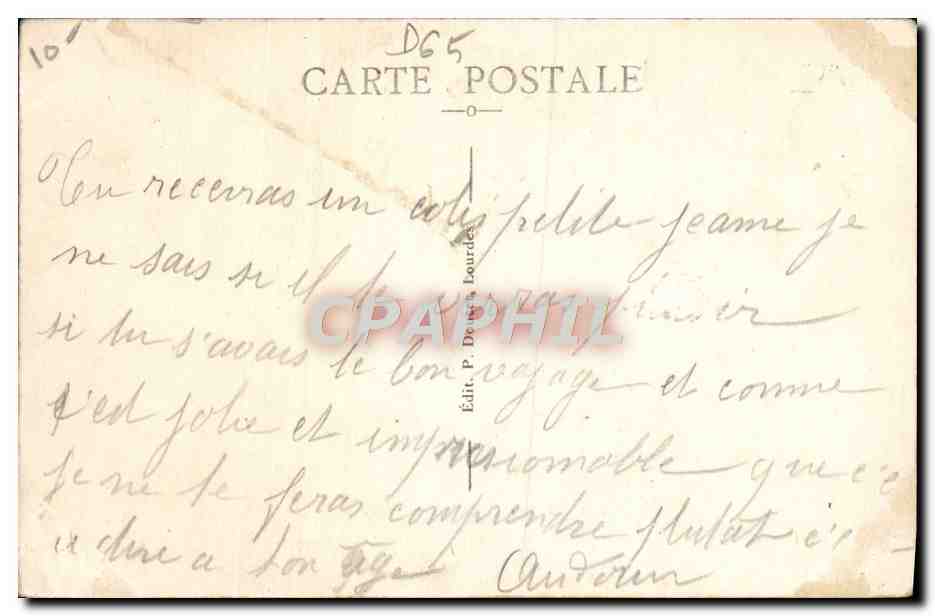 10
D65
CARTE POSTALE
Tu recevras un colis petite jeanne je
ne sais si il te feras plaisir
si tu s'avais le bon voyage et comme
s'ed jolie et impresionable que c'e
je ne te feras comprendre plutat c'e
a dire a ton age
Édit. P. Doucet, Lourdes
CPAPHIL